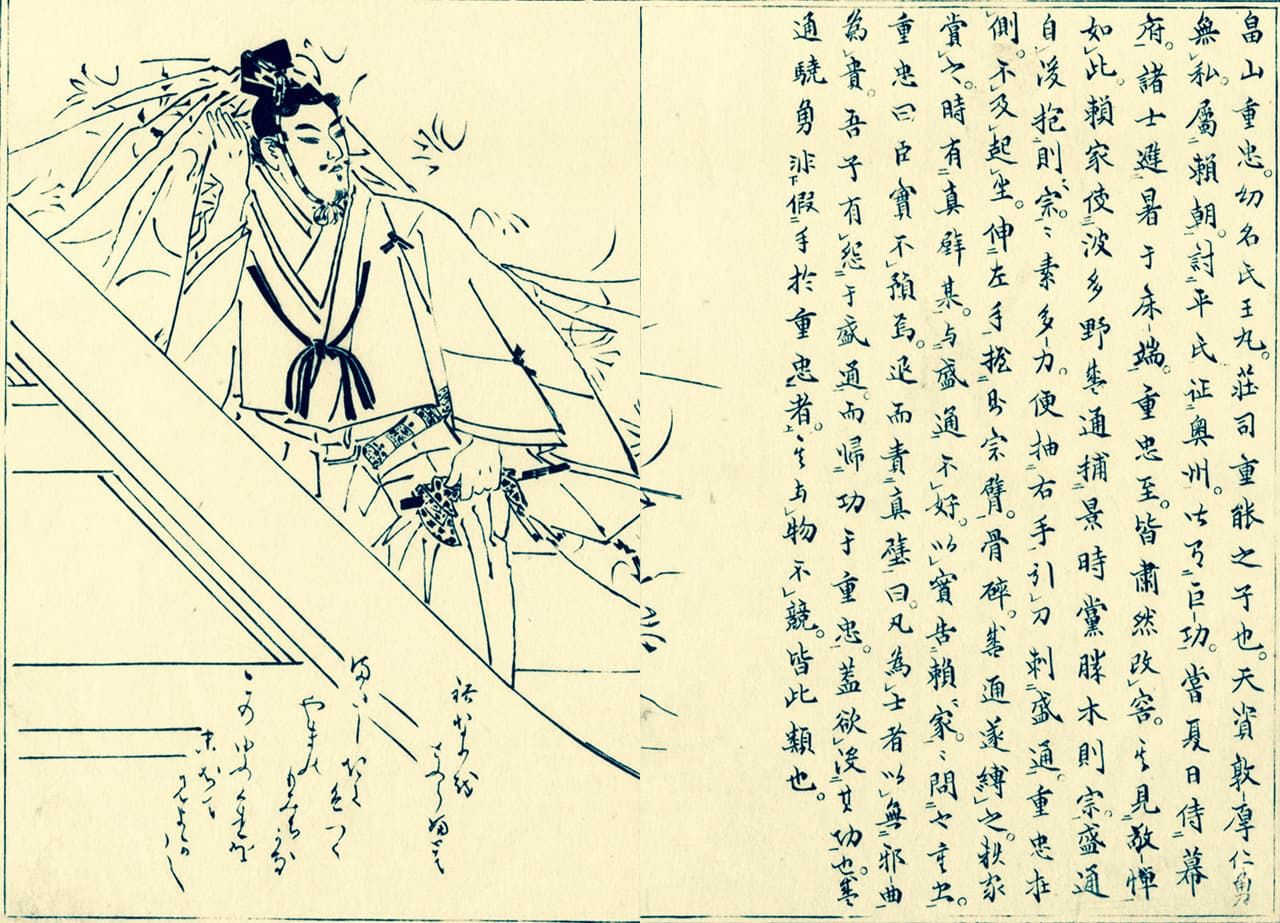 畠山重忠。幼名氏王丸。莊司重能之子也。天資敦厚仁勇
無私。屬賴朝。討平氏征奧州。皆有巨功。嘗夏日侍幕
府。諸士避暑于床端。重忠至。皆肅然改容。其見敬憚
如此。賴家使波多野盛通捕景時黨勝木則宗。盛通
自後抱則宗。〻素多力。便抽右手引刀刺盛通。重忠在
側。不及起坐。伸左手握則宗臂。骨碎。盛通遂縛之。賴家
賞之。時有真壁某。与盛通不好。以實告賴家。〻問之重忠。
重忠曰臣實不預焉。退而責真壁曰。凡為士者以無邪曲
為貴。吾子有怨于盛通而歸功于重忠。蓋欲沒其功也。盛
通驍勇非假手於重忠者。其与物不競。皆此類也。